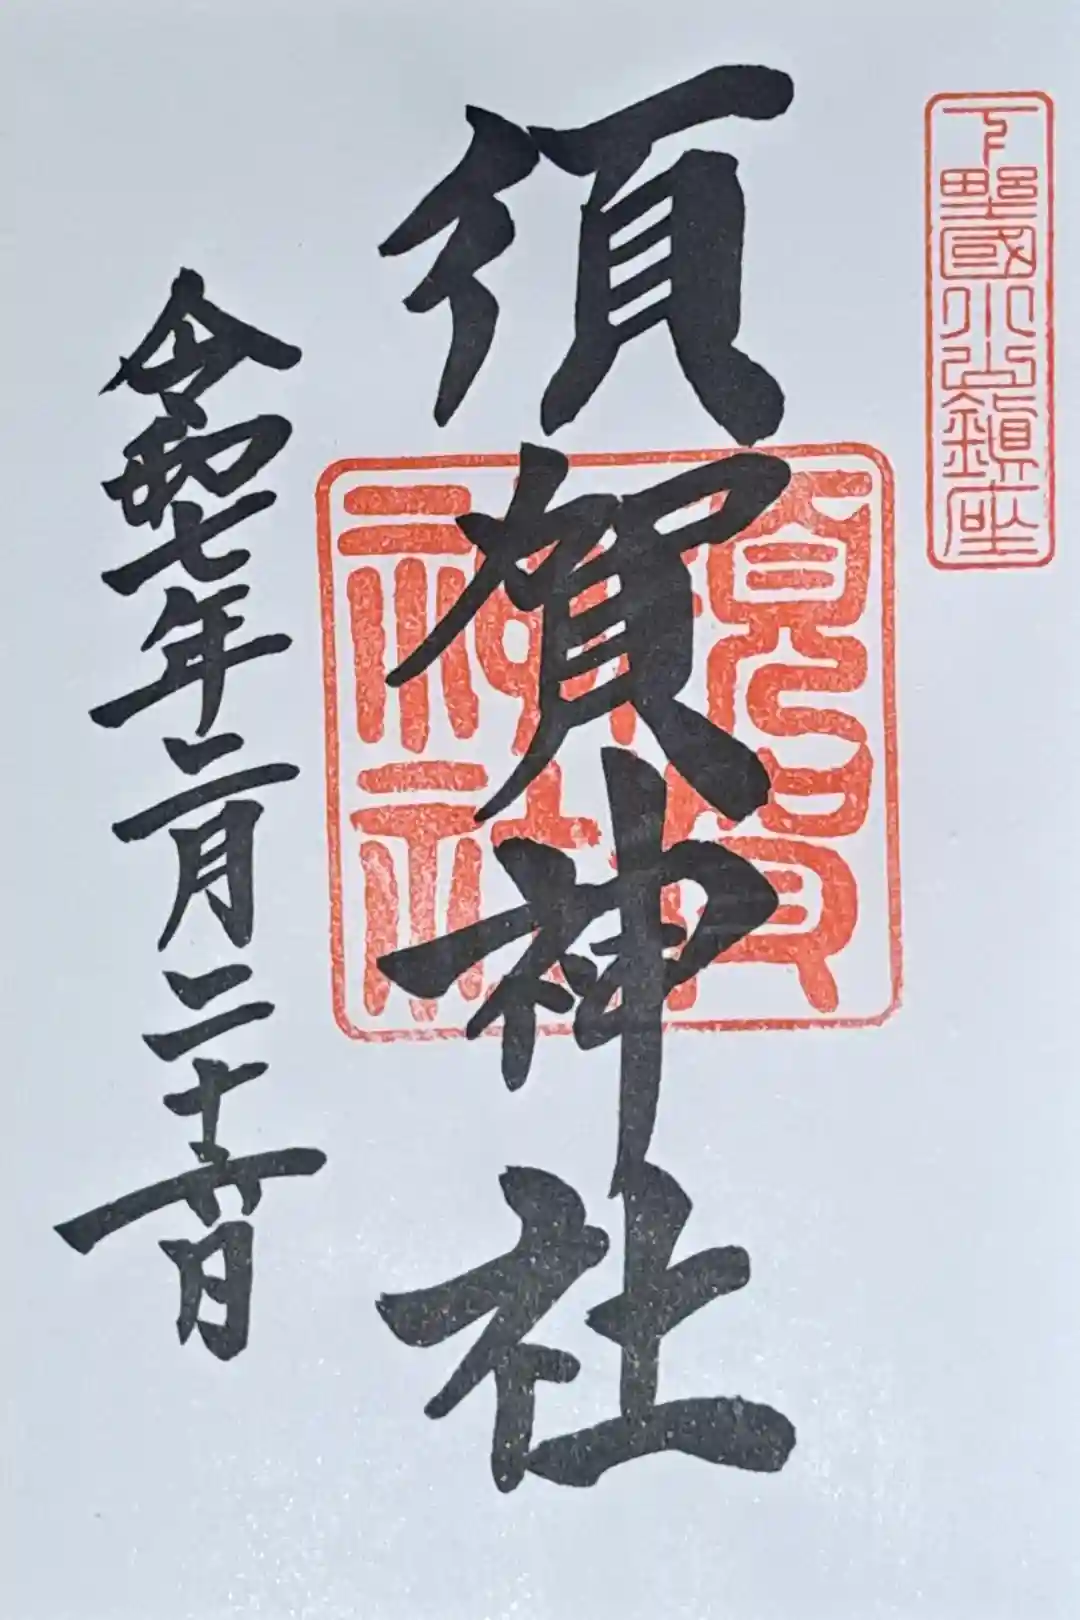 下野國小山鎮座
須賀神社
須賀神社
令和七年二月二十六日